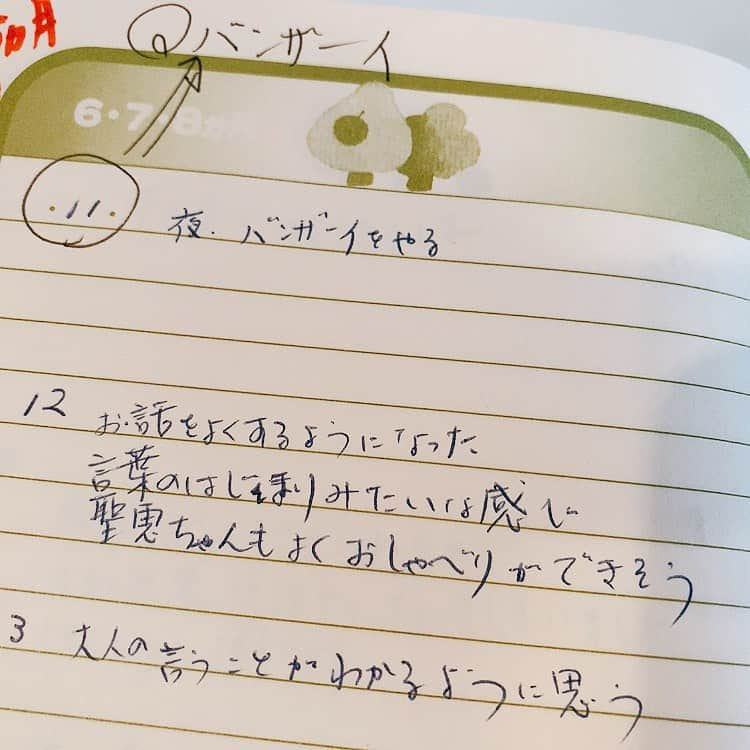 バンザーイ
6・7・8カ月
11 夜.バンザーイをやる
12 お話をよくするようになった
言葉のはじまりみたいな感じ
聖恵ちゃんもよくおしゃべりができそう
3 大人の言うことがわかるように思う